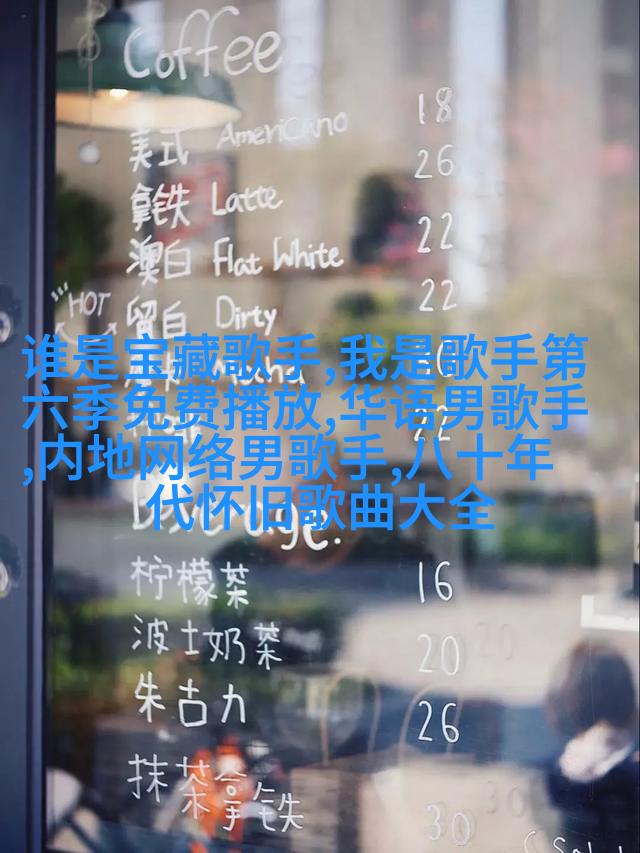 Coffee
美式 Americano 18
拿铁 Latte 26
澳白 Flat White 22
HOT
留白 Dirty 22
谁是宝藏歌手,我是歌手第
六季免费播放,华语男歌手
,内地网络男歌手,八十年
代怀旧歌曲大全
22
柠檬茶 16
波士奶茶 20
朱古力 26
抹茶拿铁 30